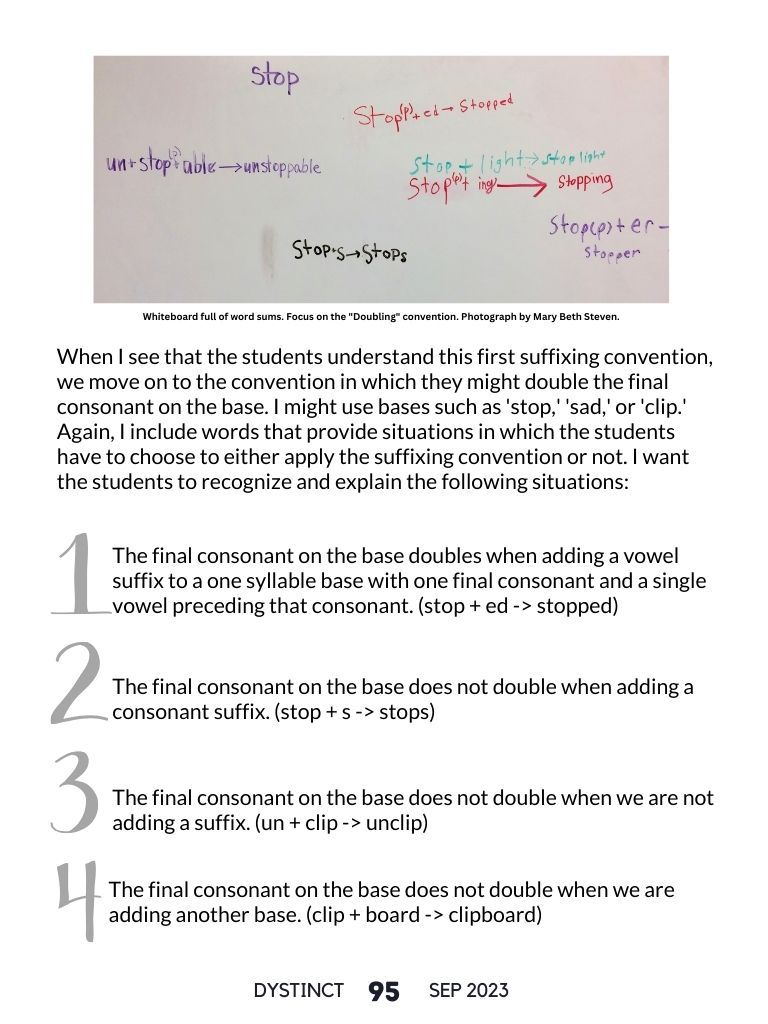 Stop
Stop(p)+ed→Stopped
un+stop(p)+able→unstoppable
Stop+light→stoplight
Stop(p)+ing→Stopping
Stop(p)+er-
Stopper
Stop+s→Stops
Whiteboard full of word sums. Focus on the "Doubling" convention. Photograph by Mary Beth Steven.
When I see that the students understand this first suffixing convention,
we move on to the convention in which they might double the final
consonant on the base. I might use bases such as 'stop,' 'sad,' or 'clip.'
Again, I include words that provide situations in which the students
have to choose to either apply the suffixing convention or not. I want
the students to recognize and explain the following situations:
1
The final consonant on the base doubles when adding a vowel
suffix to a one syllable base with one final consonant and a single
vowel preceding that consonant. (stop + ed -> stopped)
2
The final consonant on the base does not double when adding a
consonant suffix. (stop + s -> stops)
3
The final consonant on the base does not double when we are not
adding a suffix. (un + clip -> unclip)
4
The final consonant on the base does not double when we are
adding another base. (clip + board -> clipboard)
DYSTINCT 95 SEP 2023